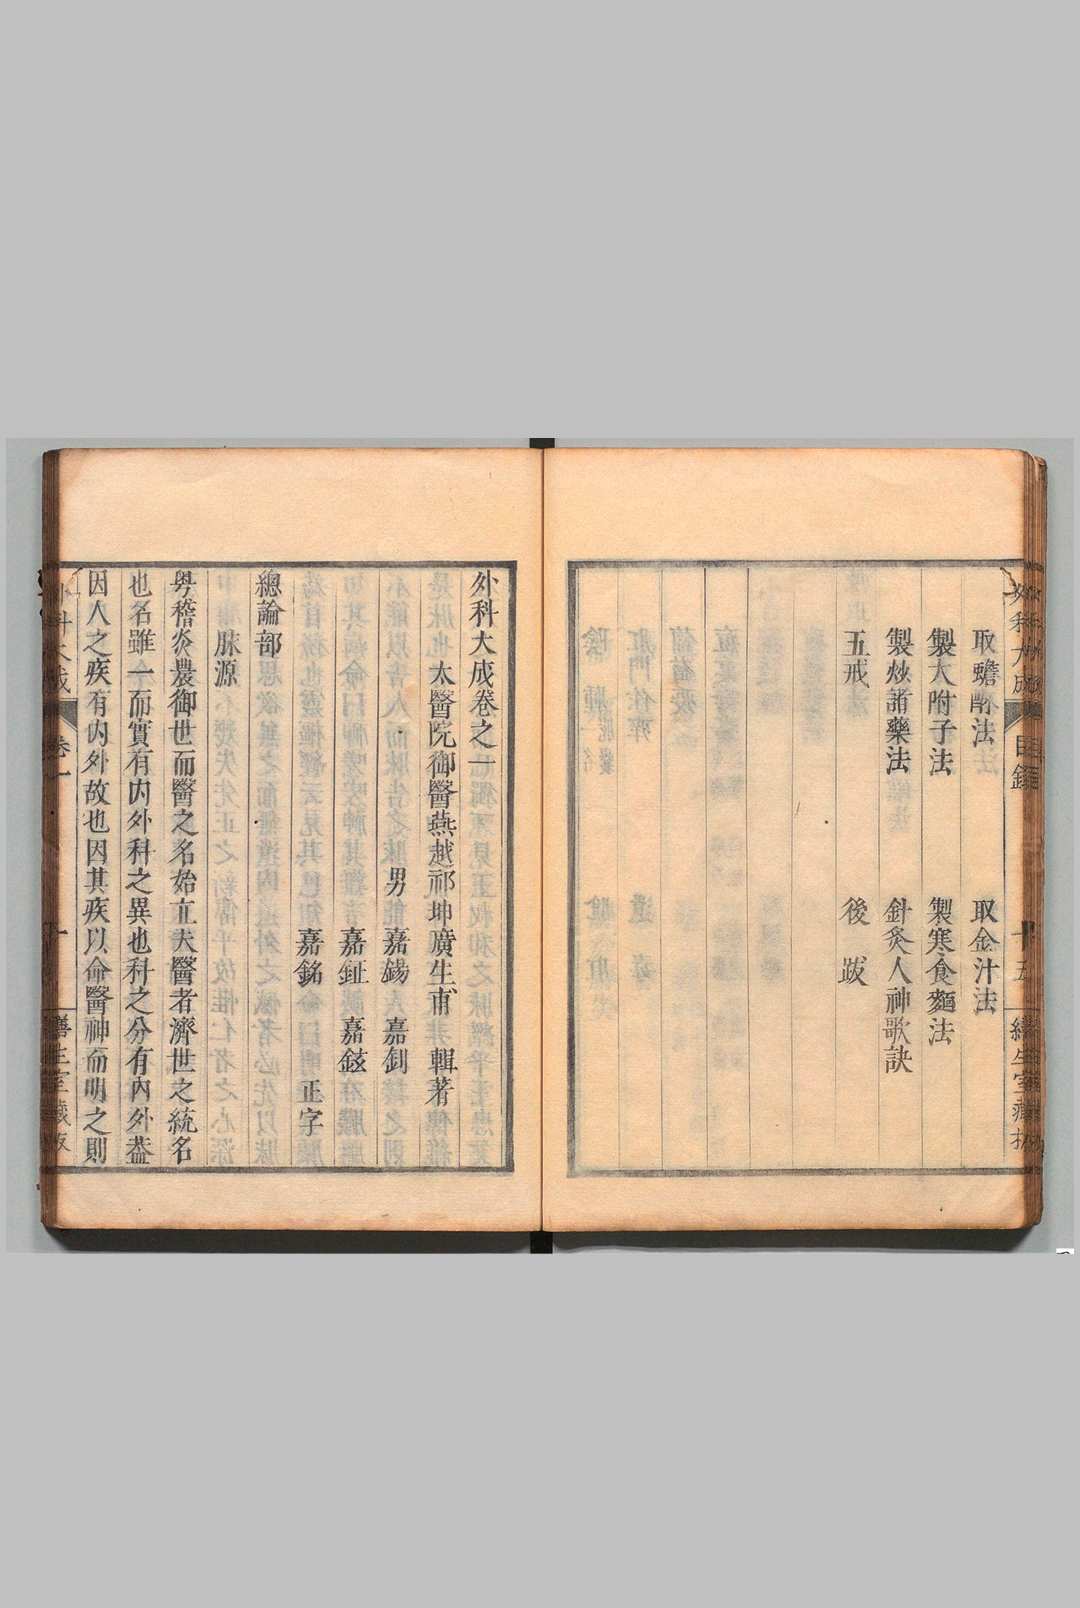 取蟾酥法
取金汁法
製大附子法
製寒食麵法
製炒諸藥法
針灸人神歌訣
五戒
後跋
外科大成卷之一
太醫院御醫燕越祁坤廣生甫 輯著
男 嘉錫 嘉釗
嘉鉦 嘉鉉
嘉銘 正字
總論部
脉源
粵稽炎農御世而醫之名始立夫醫者濟世之統名
也名雖一而實有內外科之異也科之分有內外葢
因人之疾有內外故也因其疾以命醫神而明之則